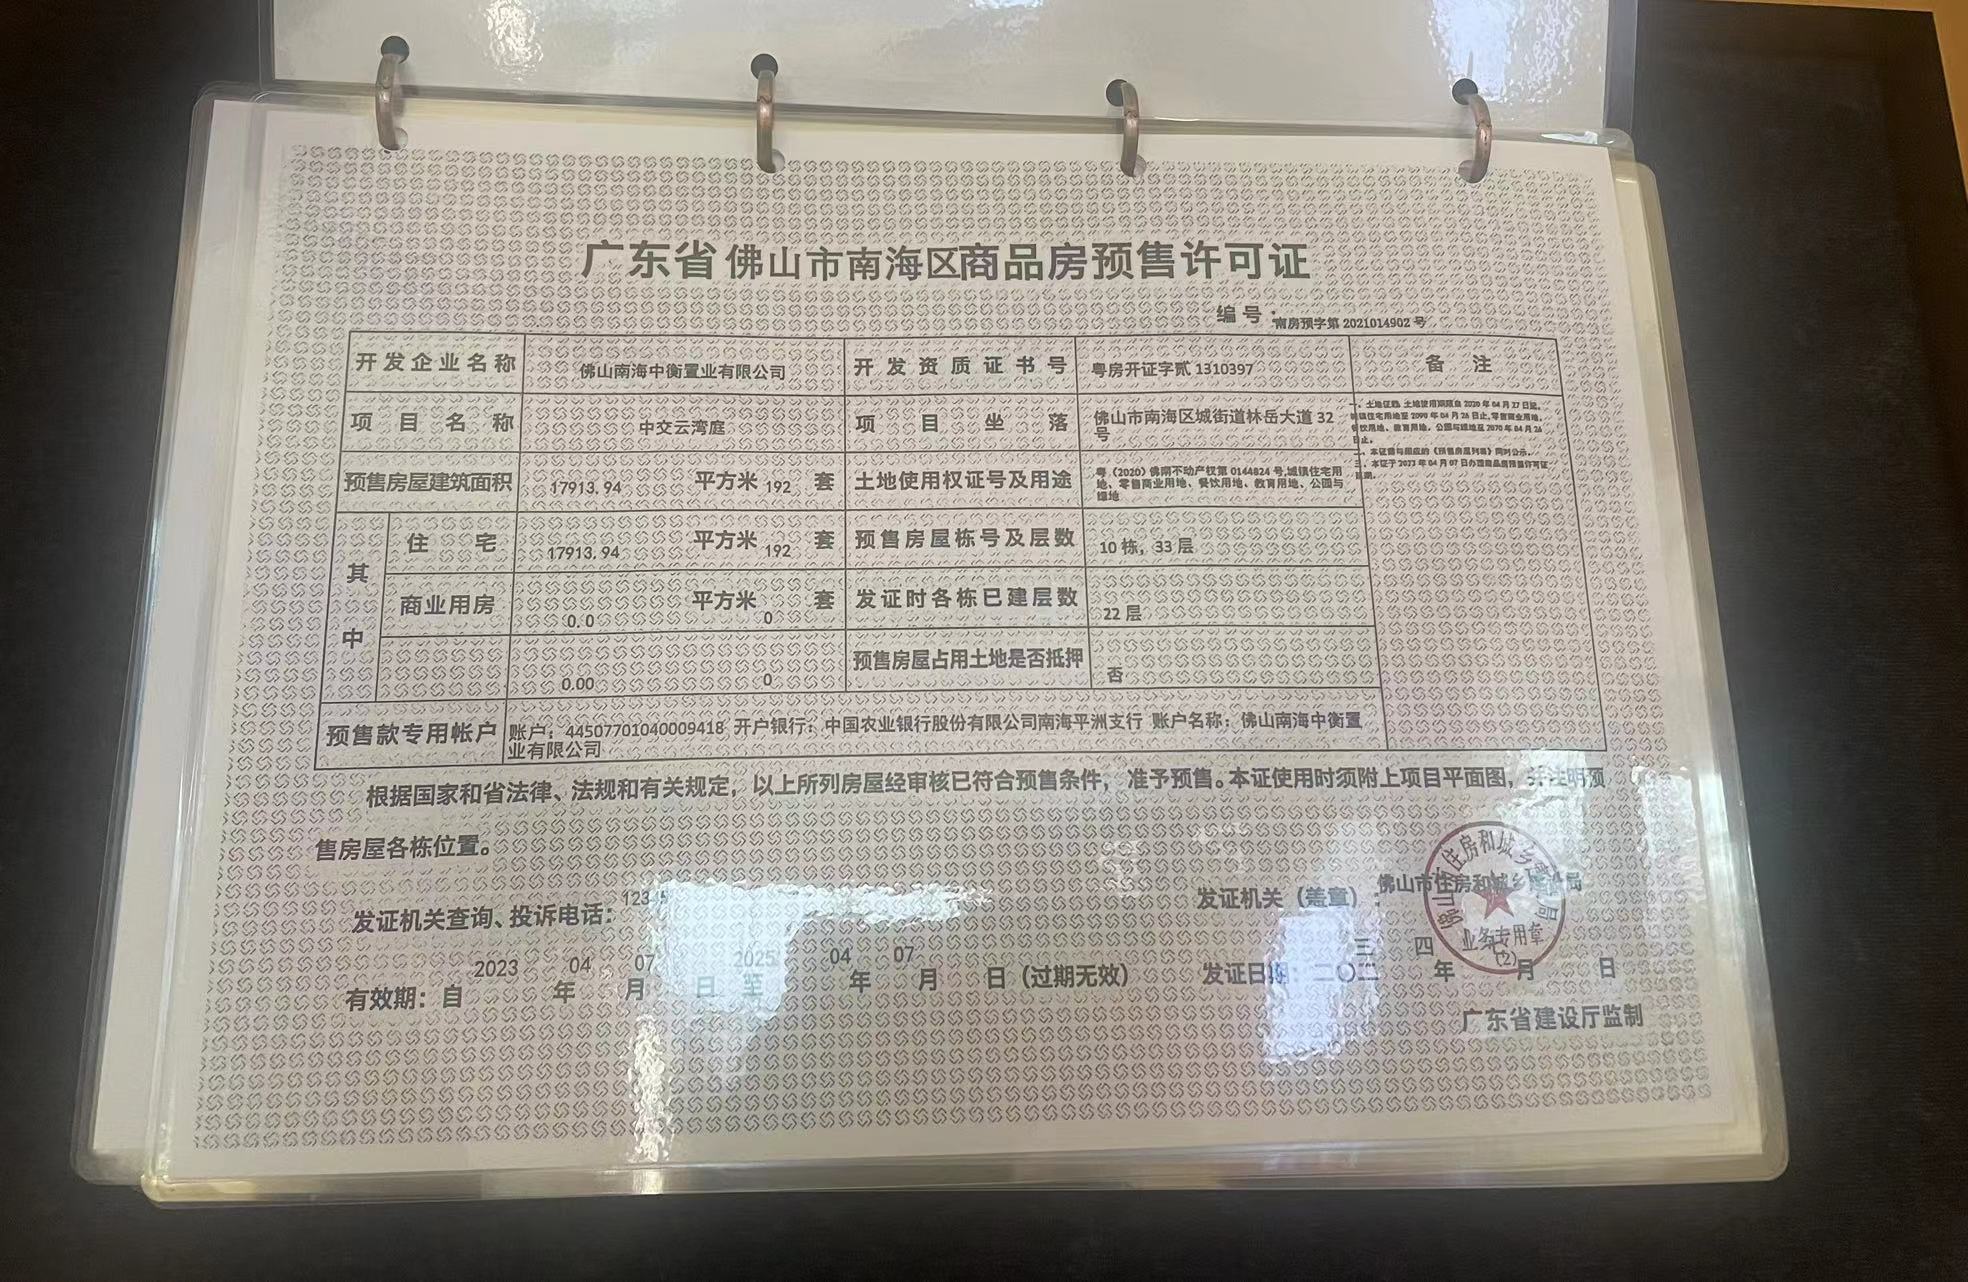 广东省佛山市南海区商品房预售许可证
编号：南房预字第 2021014902 号
开发企业名称 佛山南海中衡置业有限公司 开发资质证书号 粤房开证字贰 1310397 备注
项目名称 中交云湾庭 项目坐落 佛山市南海区城街道林岳大道 32
号
一、土地证载 土地使用期限自 2020 年 04 月 27 日起,
城镇住宅用地至 2090 年 04 月 26 日止,零售商业用地、
餐饮用地、教育用地、公园与绿地至 2070 年 04 月 26
日止。
二、本证需与相应的《预售房屋列项》同时公示。
三、本证于 2023 年 04 月 07 日办理商品房预售许可证
延期。
预售房屋建筑面积 17913.94 平方米 192 套 土地使用权证号及用途 粤（2020）佛南不动产权第 0144824 号,城镇住宅用
地、零售商业用地、餐饮用地、教育用地、公园与
绿地
其中 住宅 17913.94 平方米 192 套 预售房屋栋号及层数 10 栋，33 层
商业用房 0.0 平方米 0 套 发证时各栋已建层数 22 层
0.00 0 预售房屋占用土地是否抵押 否
预售款专用帐户 账户：44507701040009418 开户银行：中国农业银行股份有限公司南海平洲支行 账户名称：佛山南海中衡置
业有限公司
根据国家和省法律、法规和有关规定，以上所列房屋经审核已符合预售条件，准予预售。本证使用时须附上项目平面图，并注明预
售房屋各栋位置。
发证机关查询、投诉电话：12345
发证机关（盖章）：佛山市住房和城乡建设局
佛山市住房和城乡建设局
业务专用章
(2)
有效期：自 2023 年 04 月 07 日至 2025 年 04 月 07 日（过期无效）
发证日期：二〇二三年四月 日
广东省建设厅监制